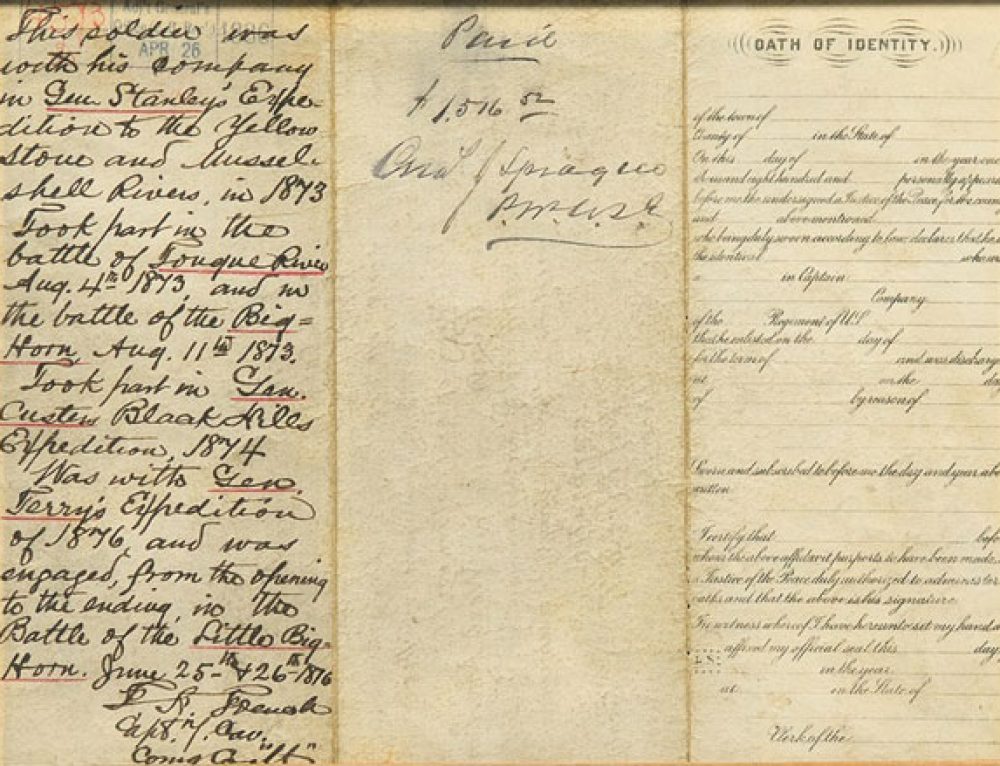 This soldier was
with his company
in Gen. Stanley's Expe-
dition to the Yellow
stone and Mussel-
shell Rivers, in 1873
Took part in the
battle of Tongue River
Aug. 4th 1873, and in
the battle of the Big=
Horn, Aug. 11th 1873.
Took part in Gen.
Custers Black Hills
Expedition, 1874
Was with Gen.
Terry's Expedition
of 1876, and was
engaged, from the opening
to the ending, in the
Battle of the Little Big-
Horn. June 25th & 26th 1876
French
Capt. 7. Cav.
Comg Co.
APR 26
Paid
$1,516.52
Sprague
OATH OF IDENTITY.
of the town of
County of in the State of
On this day of in the year one
thousand eight hundred and personally appeared
before me the undersigned a Justice of the Peace, for the county
and above mentioned
who being duly sworn according to law, declares that he is
the identical who was
a in Captain
Company
of the Regiment of U.S.
that he enlisted on the day of
for the term of and was discharged
at on the day
of by reason of
Sworn and subscribed to before me the day and year above
written
I certify that before
whom the above affidavit purports to have been made, is
a Justice of the Peace duly authorized to administer
oaths and that the above is his signature.
In witness whereof I have hereunto set my hand and
L.S. affixed my official seal this day
in the year
at in the State of
Clerk of the